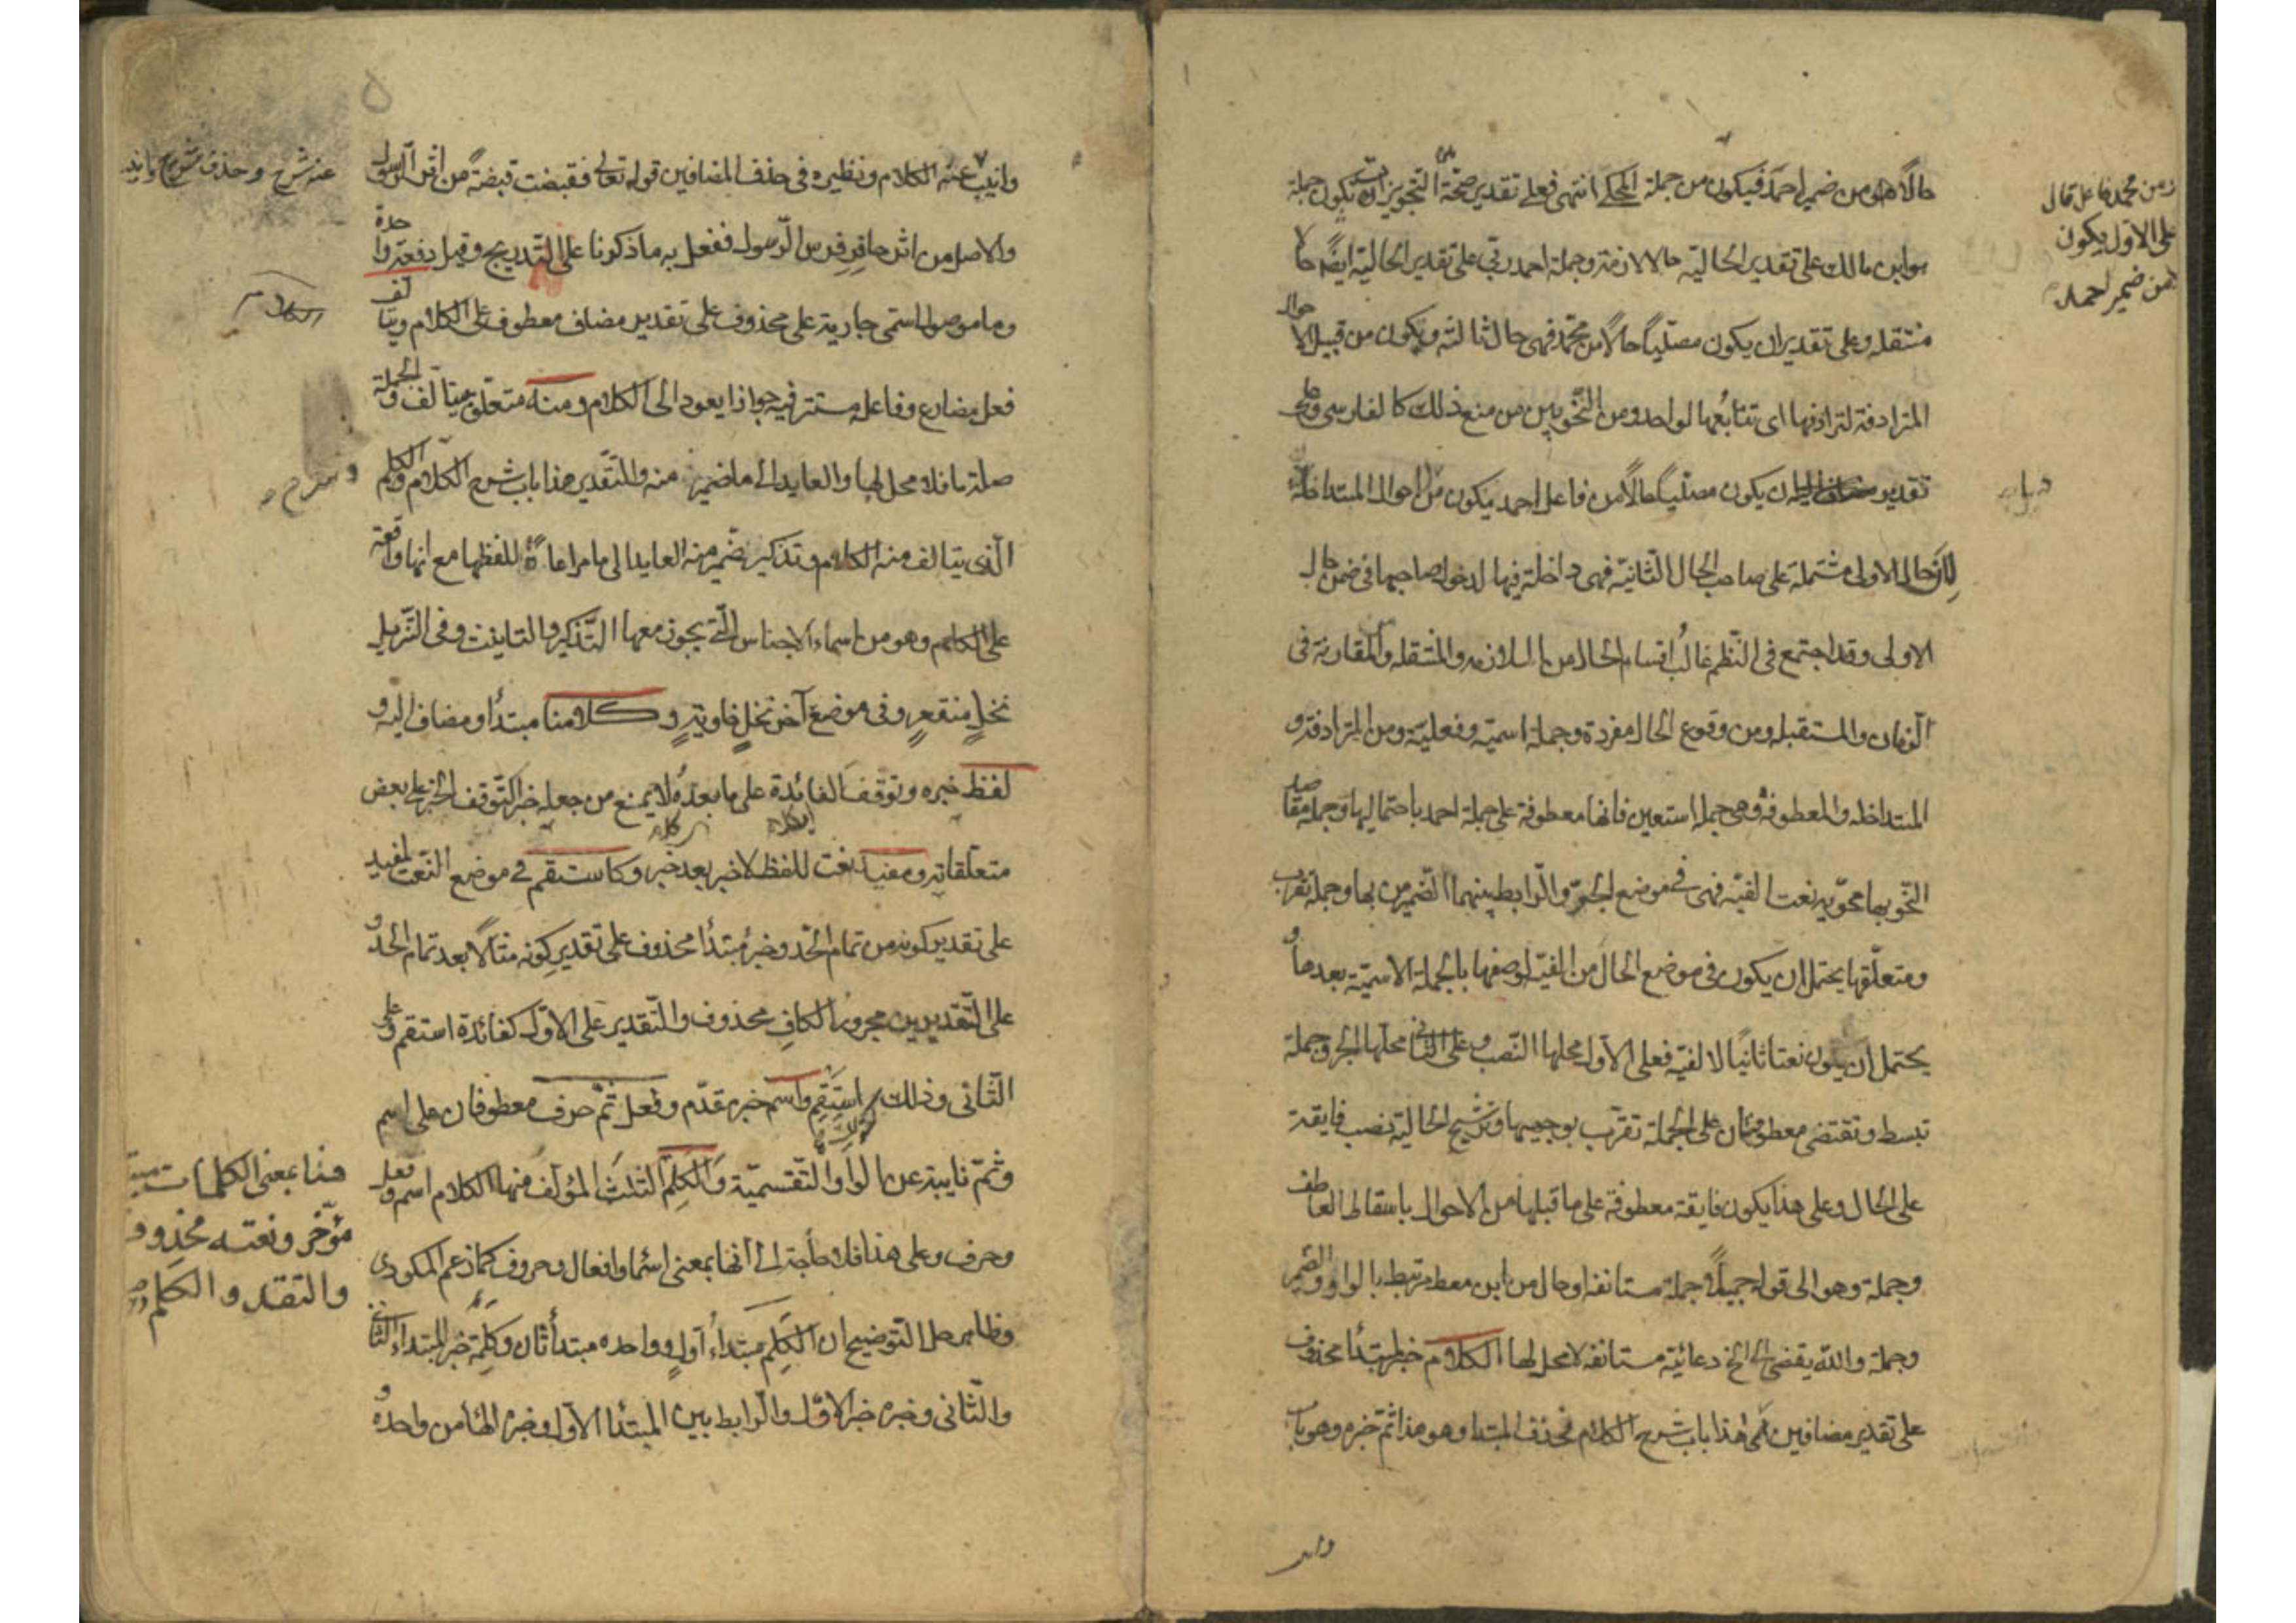 حالًا هو من ضمير احمد فيكون من جملة المحكي انتهى فعلى تقدير صحة التجويزات تكون جملة
هو ابن مالك على تقدير الحالية حالا لازمة وجملة احمد ربي على تقدير الحالية ايضًا حالا
منتقلة وعلى تقدير ان يكون مصليًا حالًا من محمد فهي حال ثالثة ويكون من قبيل الاحوال
المترادفة لترادفها اى تتابعها لواحد ومن النحويين من منع ذلك كالفارسي وعلى
تقدير ان يكون مصليًا حالًا من فاعل احمد يكون من الاحوال المتداخلة
لان الحال الاولى مشتملة على صاحب الحال الثانية فهي داخلة فيها لدخول صاحبها في ضمن حال
الاولى وقد اجتمع في النظم غالب اقسام الحال من اللازمه والمنتقله والمقارنة في
الزمان والمستقبله ومن وقوع الحال مفردة وجملة اسمية وفعلية ومن المترادفة و
المتداخله والمعطوفة وهي جملة استعين فانها معطوفة على جملة احمد باحتماليها وجملة مقاصد
النحو بها محوية نعت الفية فهي في موضع الجر والرابط بينهما الضمير من بها وجملة تقرب
ومتعلقها يحتمل ان يكون في موضع الحال من الفية لوصفها بالجملة الاسمية بعدها و
يحتمل ان يكون نعتا ثانيًا لالفية فعلى الاول محلها النصب وعلى الثاني محلها الجر وجملة
تبسط وتقتضى معطوفتان على الجملة تقرب بوجهيها وترشيح الحالية نصب فايقة
على الحال وعلى هذا يكون فايقة معطوفة على ما قبلها من الاحوال باسقاط العاطف
وجملة وهو الى قوله جميلًا جملة مستانفه او حال من ابن معط مرتبط بالواو والضمير
وجملة والله يقضى الى الخ دعائية مستانفه لا محل لها الكلام خبر لمبتدأ محذوف
على تقدير مضافين اى هذا باب شرح الكلام فحذف المبتدا وهو هذا ثم خبره وهو باب
على الاول يكون
من ضمير احمد
وانيب عنه الكلام ونظيره في حذف المضافين قوله تعالى فقبضت قبضةً من اثر الرسول
والاصل من اثر حافر فرس الرسول ففعل به ما ذكرنا على التدريج وقيل دفعة واحدة
وما موصول اسمى جارية على محذوف على تقدير مضاف معطوف على الكلام ويتالف
فعل مضارع وفاعله مستتر فيه جوازا يعود الى الكلام ومنه متعلق بيتالف والجملة
صلة ما فلا محل لها والعايد الى ما ضمير منه والتقدير هذا باب شرح الكلام والكلم
الذى يتالف منه الكلام وتذكير ضمير منه العايد الى ما مراعاةً للفظها مع انها واقعة
على الكلم وهو من اسماء الاجناس التي يجوز معها التذكير والتانيث وفي التنزيل
نخلٍ منقعرٍ وفي موضع آخر نخلٍ خاويةٍ وكلامنا مبتدأ ومضاف اليه و
لفظ خبره وتوقف الفائدة على ما بعده لا يمنع من جعله خبرا لتوقف الخبر على بعض
متعلقاته ومفيد نعت للفظ لا خبر بعد خبر وكاستقم في موضع النعت لمفيد
على تقدير كونه من تمام الحد وخبر مبتدأ محذوف على تقدير كونه مثالًا بعد تمام الحد و
على التقديرين مجرور الكاف محذوف والتقدير على الاول كفائدة استقم وعلى
الثانى وذلك كقولك استقم واسم خبر مقدم وفعل ثم حرف معطوفان على اسم
وثم نايبة عن الواو التقسمية والكلم الثلث المؤلف منها الكلام اسم وفعل
وحرف وعلى هذا فلا حاجة الى انها بمعنى اسما وافعال وحروف كما زعم المكودى
وظاهر حل التوضيح ان الكلم مبتدأ اول وواحده مبتدأ ثان وكلمة خبر المبتداء الثانى
والثانى وخبره خبر الاول والرابط بين المبتدا الاول وخبره الها من واحده و
عنه شرح وحذف شرح وانيب
الكلام
هنا بمعنى الكلمات مبتدا
مؤخر ونعته محذوف
والتقدير والكلم